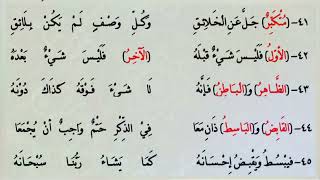 ٤١- (مُتَكَبِّرٌ) جَلَّ عَنِ الْخَلَائِقِ وَكُلِّ وَصْفٍ لَمْ يَكُنْ بِلَائِقِ
٤٢- (الْأَوَّلُ) فَلَيْسَ شَيْءٌ قَبْلَهُ (الْآخِرُ) فَلَيْسَ شَيْءٌ بَعْدَهُ
٤٣- (الظَّاهِرُ) وَ(الْبَاطِنُ) فَإِنَّهُ لَا شَيْءَ فَوْقَهُ كَذَاكَ دُونَهُ
٤٤- (الْقَابِضُ) وَ(الْبَاسِطُ) ذَانِ مَعَا فِي الذِّكْرِ حَتْمٌ وَاجِبٌ أَنْ يُجْمَعَا
٤٥- فَيَبْسُطُ وَيَقْبِضُ إِحْسَانَهُ كَمَا يَشَاءُ رَبُّنَا سُبْحَانَهُ